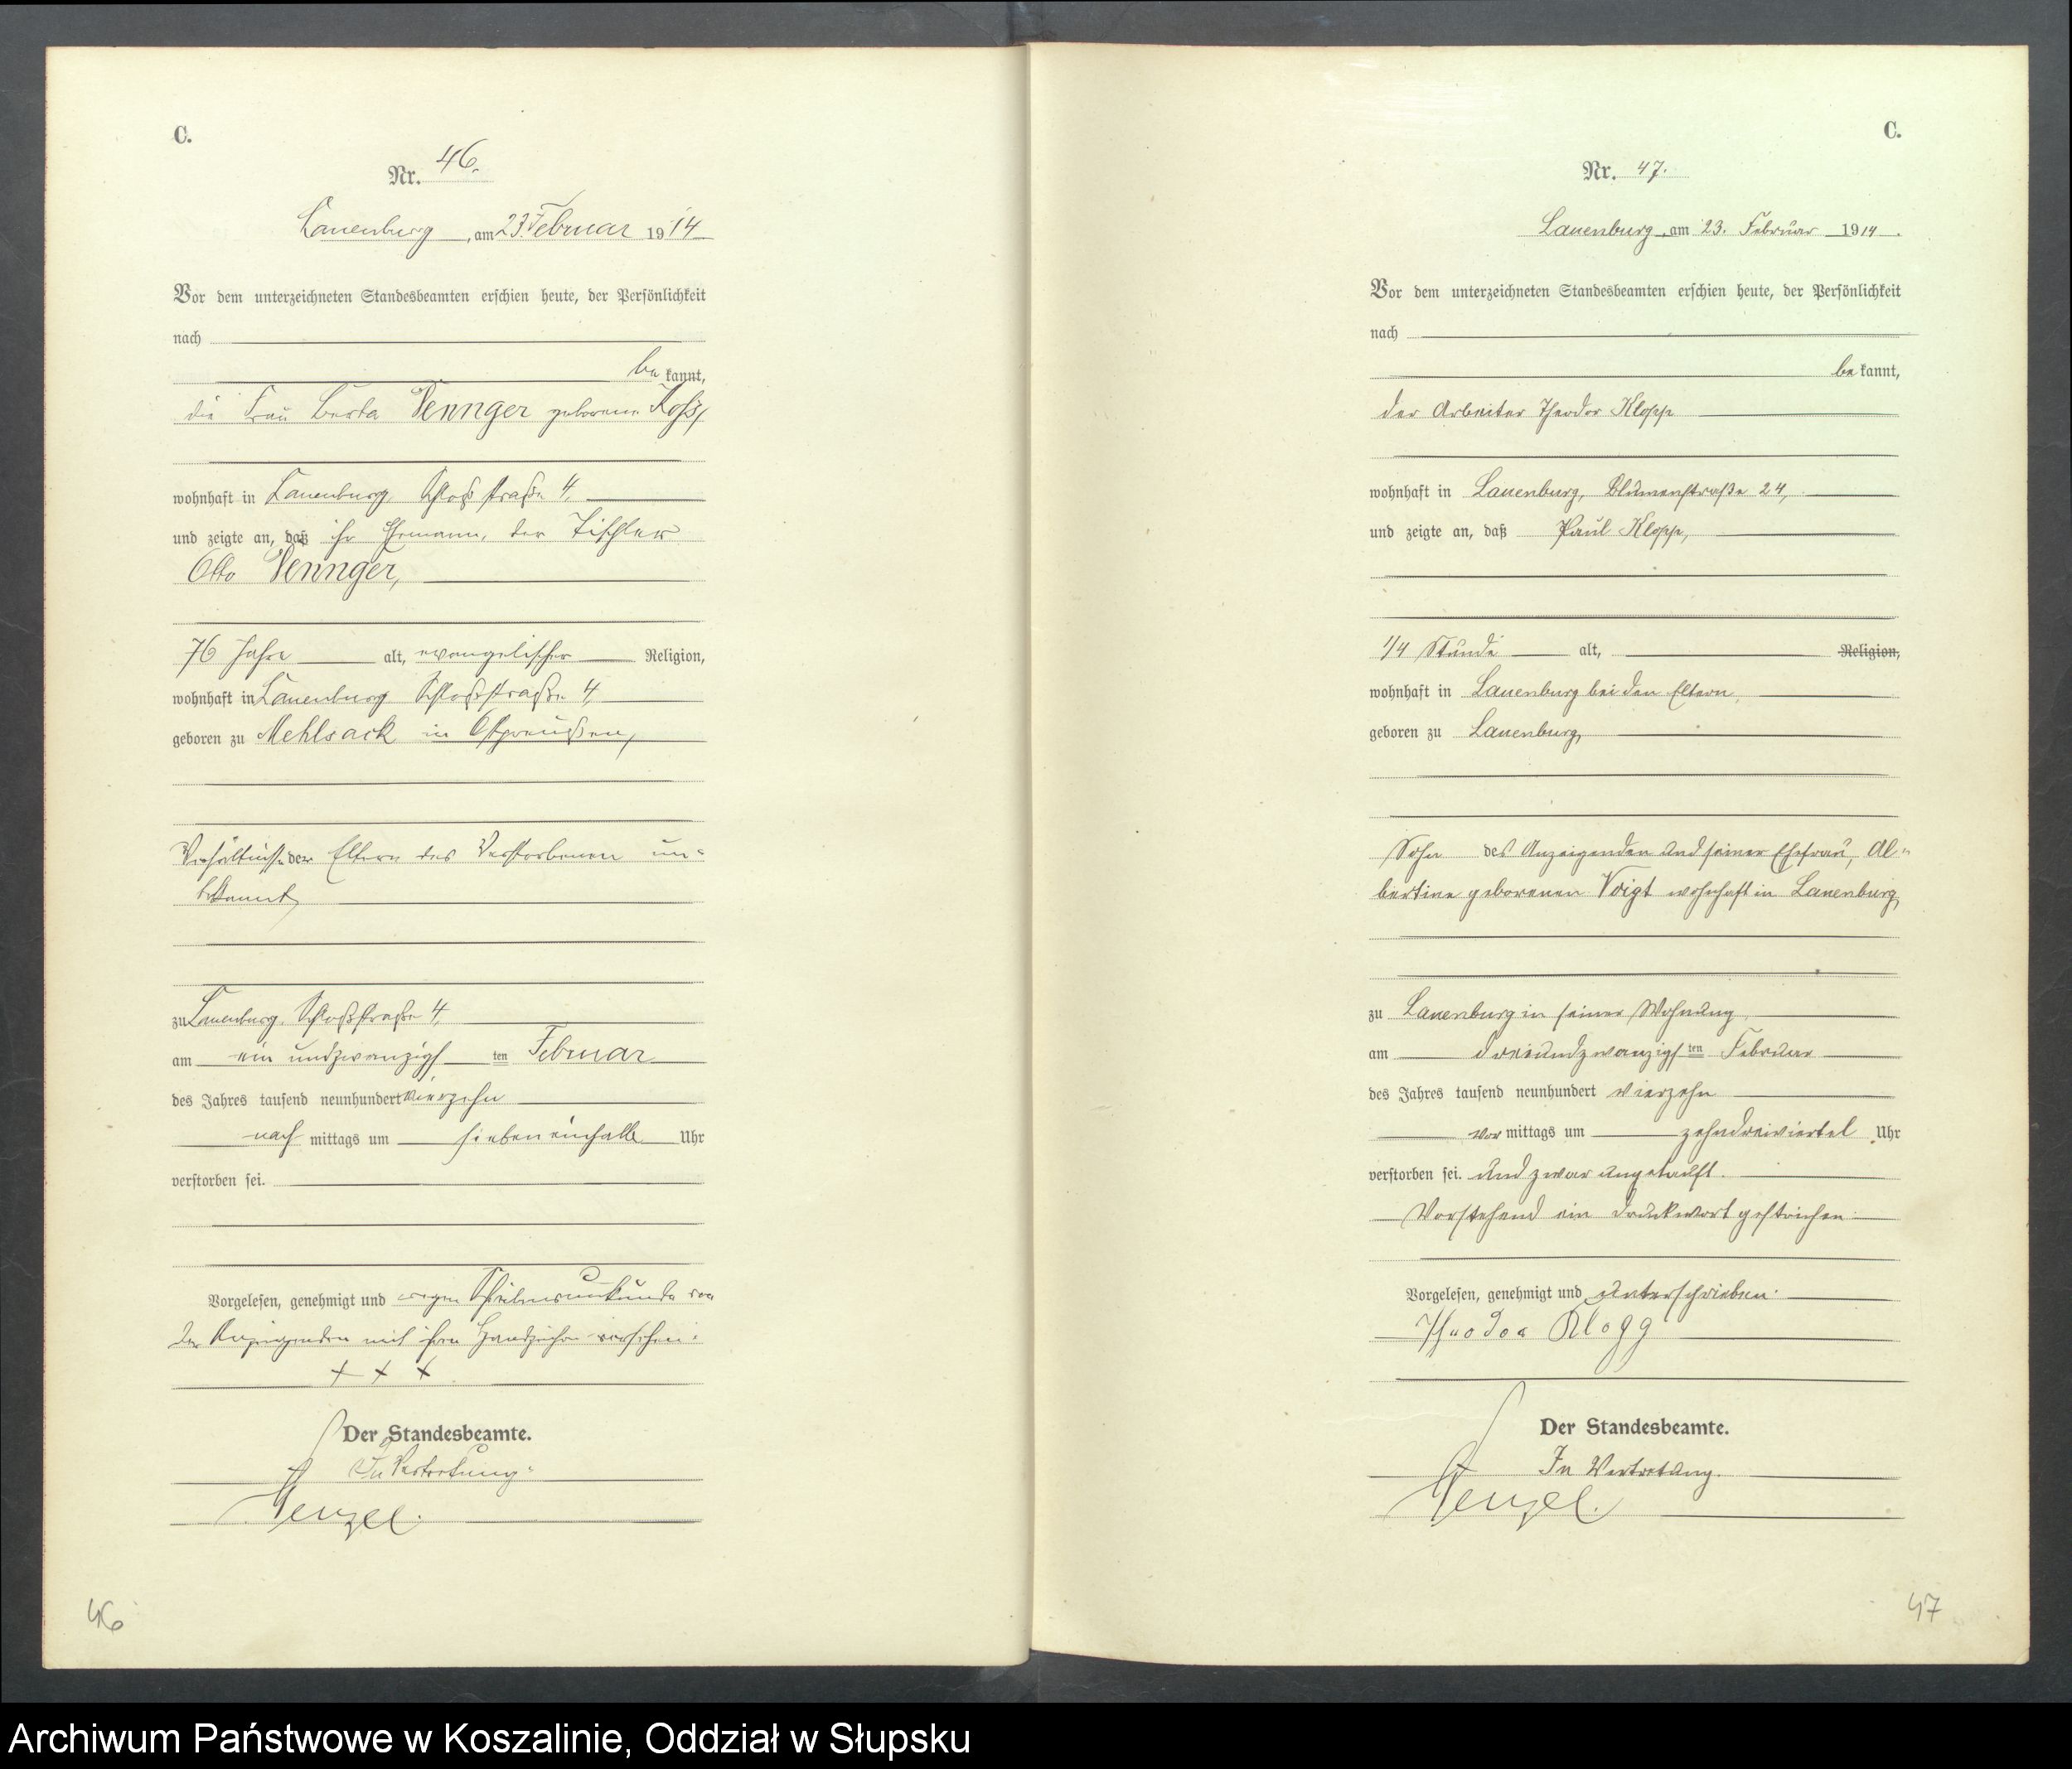 C.
Nr. 46.
Lauenburg, am 23. Februar 1914
Vor dem unterzeichneten Standesbeamten erschien heute, der Persönlichkeit
nach
be kannt,
die Frau Berta geborene Koß,
wohnhaft in Lauenburg Schloßstraße 4,
und zeigte an, daß ihr Ehemann, der Tischler
Otto
76 Jahre alt, evangelischer Religion,
wohnhaft in Lauenburg Schloßstraße 4,
geboren zu Mehlsack in Ostpreußen,
Verhältnisse der Eltern des Verstorbenen un=
bekannt,
zu Lauenburg, Schloßstraße 4,
am ein undzwanzigsten Februar
des Jahres tausend neunhundert vierzehn
nach mittags um siebeneinhalb Uhr
verstorben sei.
Vorgelesen, genehmigt und wegen Schreibensunkunde von
der Anzeigenden mit ihrem Handzeichen versehen.
+ + +
Der Standesbeamte.
In Vertretung.
Wenzel.
46
C.
Nr. 47.
Lauenburg, am 23. Februar 1914.
Vor dem unterzeichneten Standesbeamten erschien heute, der Persönlichkeit
nach
be kannt,
der Arbeiter Theodor Klopp
wohnhaft in Lauenburg, Blumenstraße 24,
und zeigte an, daß Paul Klopp,
1/4 Stunde alt, Religion,
wohnhaft in Lauenburg bei den Eltern,
geboren zu Lauenburg,
Sohn des Anzeigenden und seiner Ehefrau, Al=
bertine geborenen Voigt wohnhaft in Lauenburg,
zu Lauenburg in seiner Wohnung,
am dreiundzwanzigsten Februar
des Jahres tausend neunhundert vierzehn
vor mittags um zehndreiviertel Uhr
verstorben sei. und zwar ungetauft.
Vorstehend ein Druckwort gestrichen.
Vorgelesen, genehmigt und unterschrieben.
Theodor Klopp
Der Standesbeamte.
In Vertretung.
Wenzel.
47
Archiwum Państwowe w Koszalinie, Oddział w Słupsku